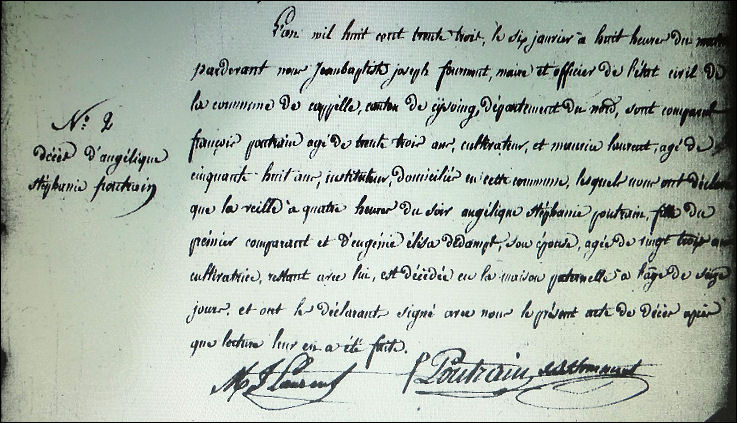 N.º 2
décès d'angélique
stéphanie poutrain
L'an mil huit cent trente trois, le six janvier à huit heures du matin
pardevant nous Jeanbaptiste joseph, maire et officier de l'état civil de
la commune de cappelle, canton de cysoing, département du nord, sont comparus
françois poutrain agé de trente trois ans, cultivateur, et maurice laurent, agé de
cinquante huit ans, instituteur, domiciliés en cette commune, lesquels nous ont déclaré
que la veille à quatre heures du soir angélique stéphanie poutrain, fille du
prémier comparant et d'eugénie élisa, son épouse, agée de vingt trois ans
cultivatrice, restant avec lui, est décédée en la maison paternelle à l'âge de seize
jours, et ont les déclarants signé avec nous le présent acte de décès après
que lecture leur en a été faite.
M J Laurent f Poutrain